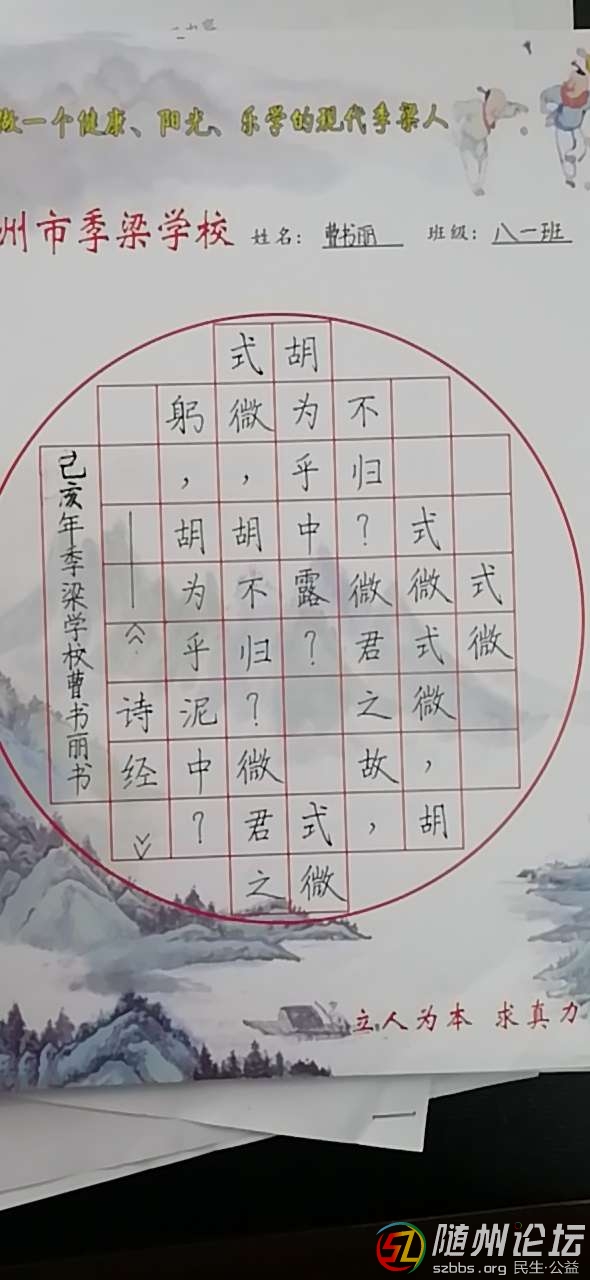 做一个健康、阳光、乐学的现代季梁人
州市季梁学校 姓名：曹书丽 班级：八一班
式微
式微式微，胡
不归？微君之故，
胡为乎中露？ 式微
式微，胡不归？微君之
躬，胡为乎泥中？
——《诗经》
己亥年季梁学校曹书丽书
立人为本 求真力
随州论坛
szbbs.org 民生·公益